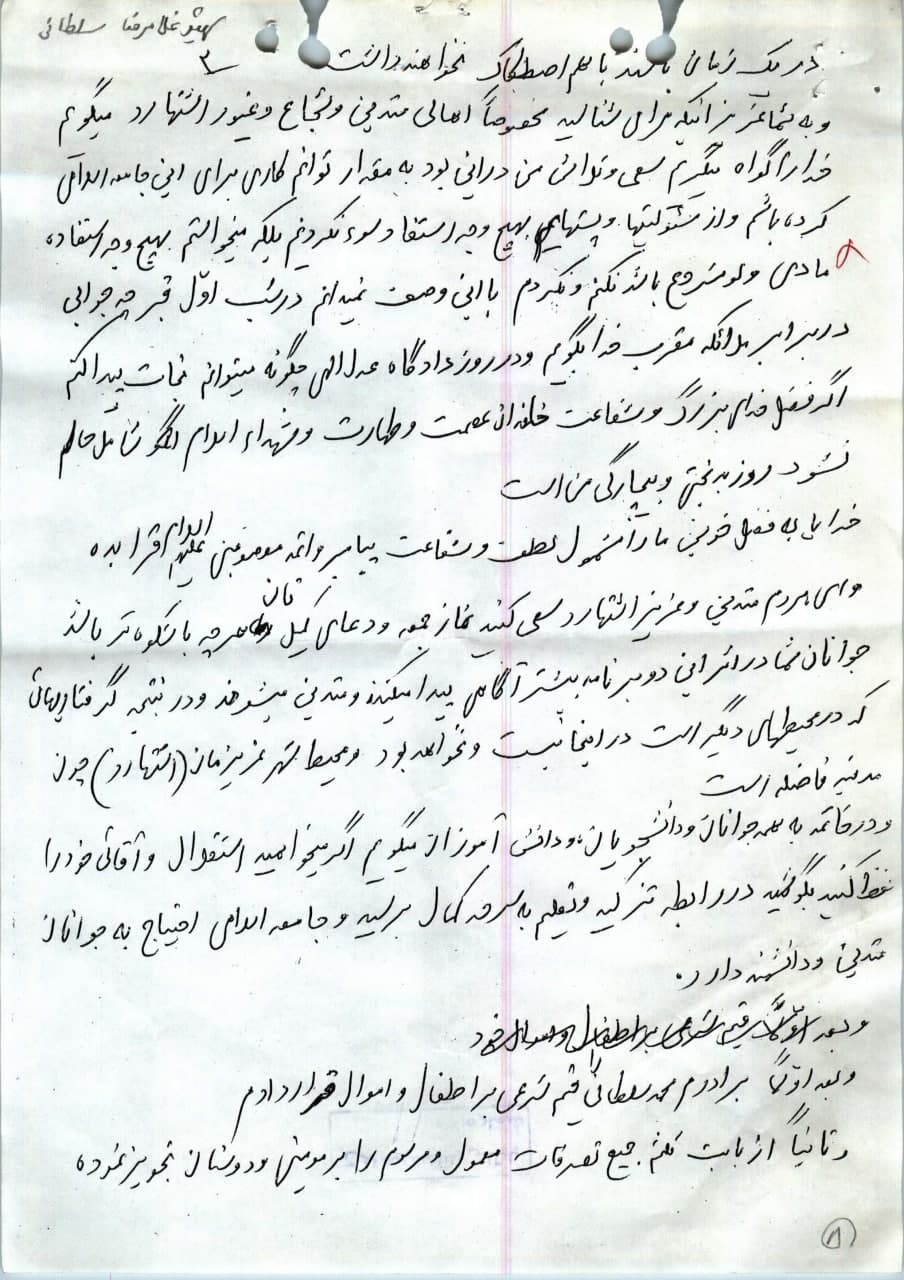 شهید غلامرضا سلطانی
۳
در یک زمان باشند با هم اصطکاک نخواهند داشت
و به شما عزیزانیکه برای شنالید مخصوصاً اهالی متدین و شجاع و غیور اشتهارد میگویم
خدا را گواه میگیرم سعی و تلاش من در این بود به مقدار توانم کاری برای این جامعه اسلامی
کرده باشم و از مسئولیتها و پستهایم بهیچ وجه استفاده سوء نکردیم بلکه میخواستم بهیچ وجه استفاده
مادی ولو مشروع باشد نکنم و نکردم با این وصف نمیدانم در شب اوّل قبر چه جوابی
در برابر ملائکه مقرب خدا بگویم و در روز دادگاه عدل الهی چگونه میتوانم نجات پیدا کنم
اگر فضل خدای بزرگ و شفاعت خاندان عصمت و طهارت و شهداء اسلام شامل حالم
نشود روز بدبختی و بیچارگی من است
خدایا به فضل خویش ما را مشمول لطف و شفاعت پیامبر و ائمه معصومین علیهم السلام قرار بده
و ای مردم متدین و عزیز اشتهارد سعی کنید نماز جمعه و دعای کمیل تان هر چه باشکوه تر باشد
جوانان شما در اثر این دو برنامه بیشتر آگاهی پیدا میکنند و متدین میشوند و در نتیجه گرفتاریهائی
که در محیطهای دیگر است در اینجا نیست و نخواهد بود و محیط شهر عزیزمان (اشتهارد) چون
مدینه فاضله است
و در خاتمه به همه جوانان و دانشجویان و دانش آموزان میگویم اگر میخواهید استقلال و آقائی خود را
حفظ کنید بکوشید در رابطه تزکیه و تعلیم به سرحد کمال برسید و جامعه اسلامی احتیاج به جوانان
متدین و دانشمند دارد.
و بعد اوّلاً برادرم محمد سلطانی را قیم شرعی بر اطفال و اموال قرار دادم
و ثانیاً از بابت ثلثم جمیع تصرفات معمول و مرسوم را بر مومنین و دوستان تجویز نموده
۸